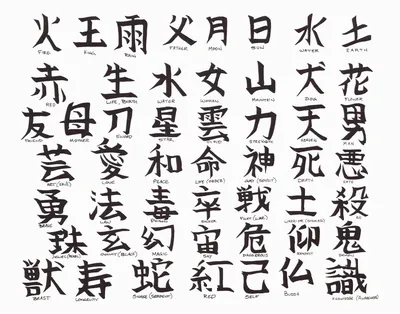 火 王 雨 父 月 日 水 土
FIRE KING RAIN FATHER MOON SUN WATER EARTH
赤 生 水 女 山 犬 花
RED LIFE, BIRTH WATER WOMAN DOG FLOWER
友 母 刀 星 雲 力 天 男
FRIEND MOTHER SWORD STAR CLOUD STRENGTH HEAVEN MAN
芸 愛 和 命 神 死 悪
ART (SKILL) LOVE PEACE GOD (SPIRIT) DEATH
勇 法 毒 卒 戦 士 殺
BRAVE LAW POISON FIGHT (WAR)
珠 玄 幻 宙 危 仰 鬼
MAGIC DANGEROUS
獣 寿 蛇 紅 己 仏 識
BEAST LONGEVITY SNAKE (SERPENT) RED SELF BUDDHA